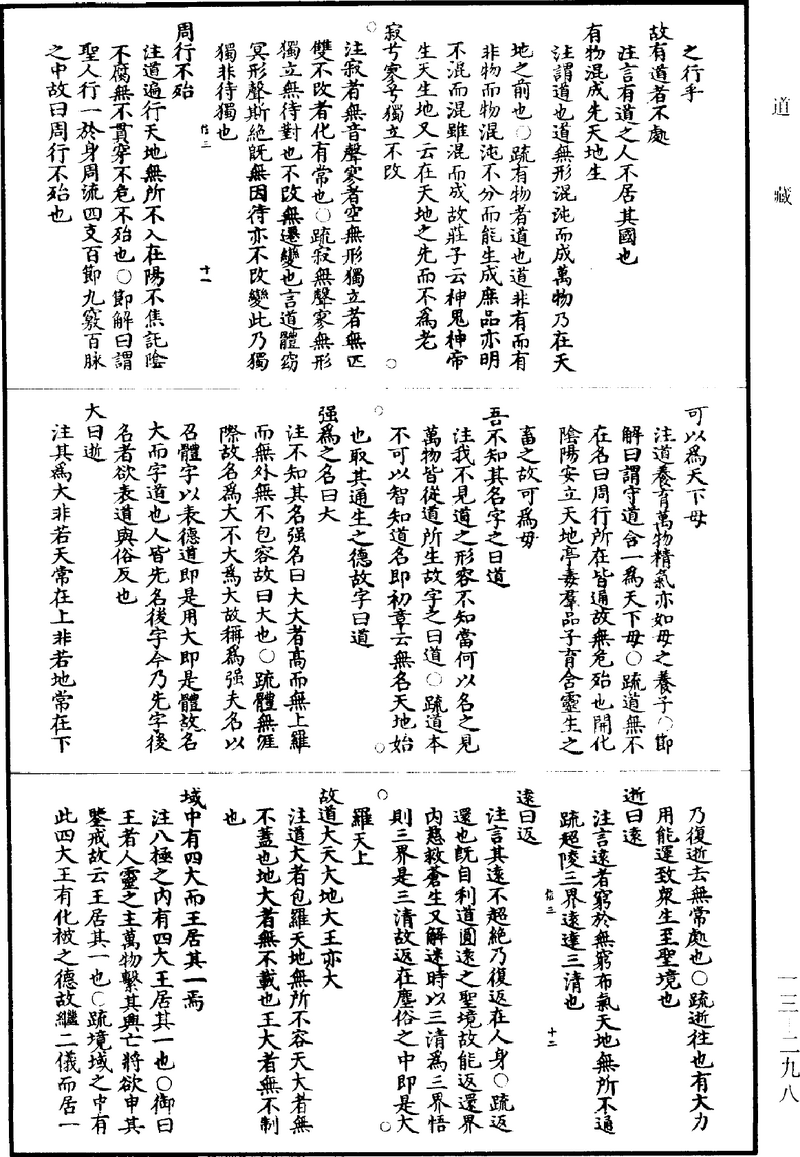 道藏
之行乎
故有道者不處
注言有道之人不居其國也
有物混成先天地生
注謂道也道無形混沌而成萬物乃在天
地之前也○疏有物者道也道非有而有
非物而物混沌不分而能生成庶品亦明
不混而混雖混而成故莊子云神鬼神帝
生天生地又云在天地之先而不為老
寂兮寥兮獨立不改
注寂者無音聲寥者空無形獨立者無匹
雙不改者化有常也○疏寂無聲寥無形
獨立無待對也不改無遷變也言道體窈
冥形聲斯絕既無因待亦不改變此乃獨
獨非待獨也
十一
周行不殆
注道遍行天地無所不入在陽不焦託陰
不腐無不貫穿不危不殆也○節解曰謂
聖人行一於身周流四支百節九竅百脉
之中故曰周行不殆也
可以為天下母
注道養育萬物精氣亦如母之養子○節
解曰謂守道含一為天下母○疏道無不
在名曰周行所在皆通故無危殆也開化
陰陽安立天地亭毒羣品子育含靈生之
畜之故可為母
吾不知其名字之曰道
注我不見道之形容不知當何以名之見
萬物皆從道所生故字之曰道○疏道本
不可以智知道名即初章云無名天地始
也取其通生之德故字曰道
强為之名曰大
注不知其名强名曰大大者高而無上羅
而無外無不包容故曰大也○疏體無涯
際故名為大不大為大故稱為强夫名以
召體字以表德道即是用大即是體故名
大而字道也人皆先名後字今乃先字後
名者欲表道與俗反也
大曰逝
注其為大非若天常在上非若地常在下
乃復逝去無常處也○疏逝往也有大力
用能運致衆生至聖境也
逝曰遠
注言遠者窮於無窮布氣天地無所不通
疏超陵三界遠達三清也
十二
遠曰返
注言其遠不超絕乃復返在人身○疏返
還也既自利道圓遠之聖境故能返還界
内慈救蒼生又解迷時以三清為三界悟
則三界是三清故返在塵俗之中即是大
羅天上
故道大天大地大王亦大
注道大者包羅天地無所不容天大者無
不蓋也地大者無不載也王大者無不制
也
域中有四大而王居其一焉
注八極之内有四大王居其一也○御曰
王者人靈之主萬物繫其興亡將欲申其
鑒戒故云王居其一也○疏境域之中有
此四大王有化被之德故繼二儀而居一
一三—二九八